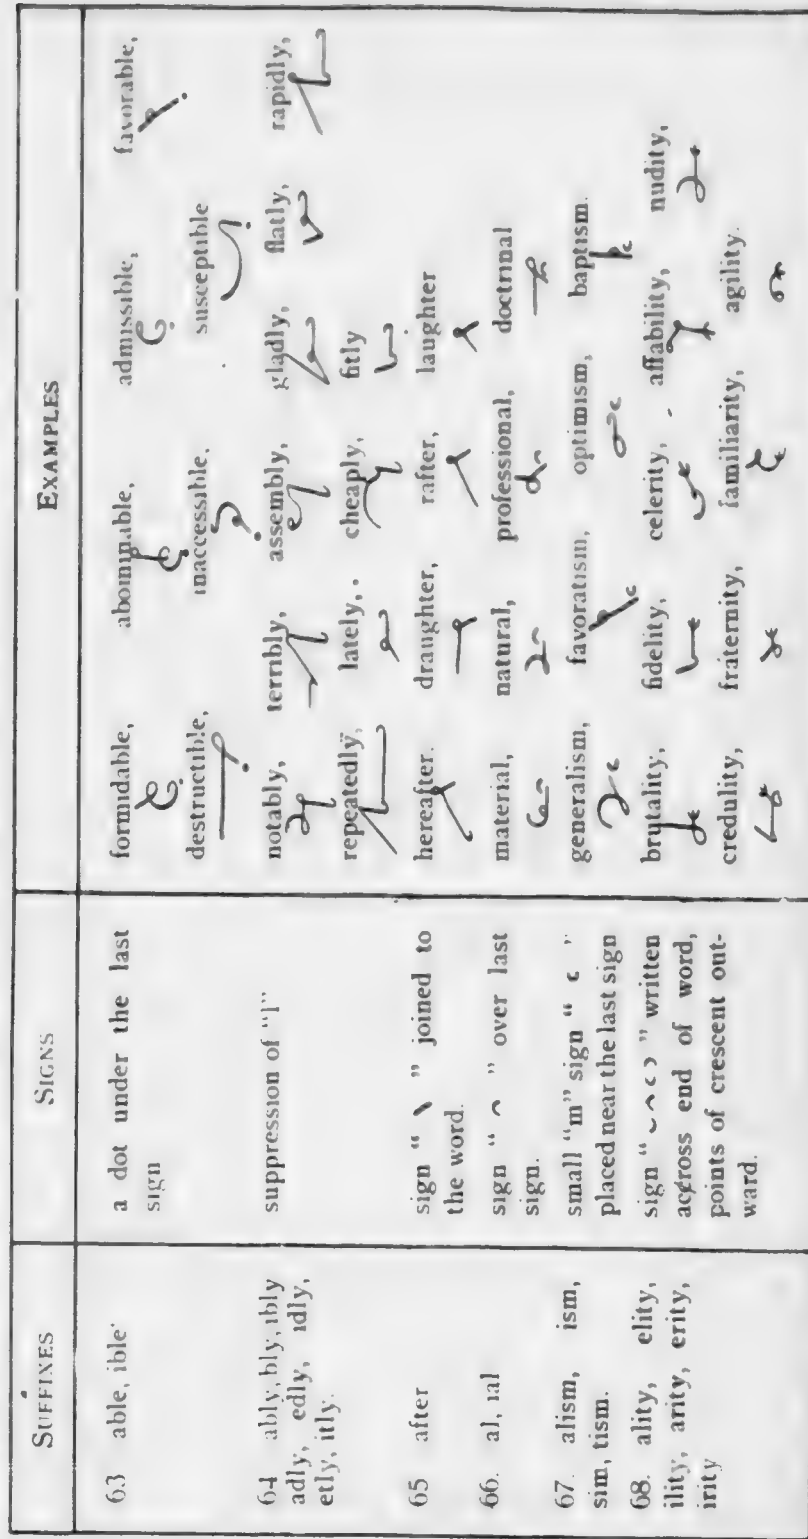 SUFFIXES
SIGNS
EXAMPLES
63 able, ible
a dot under the last
sign
formidable, abominable, admissible, favorable,
destructible, inaccessible, susceptible
64 ably, bly, ibly
adly, edly, idly,
etly, itly.
suppression of "l"
notably, terribly, assembly, gladly, flatly, rapidly,
repeatedly, lately, cheaply, fitly
65 after
sign " \ " joined to
the word.
hereafter. draughter, rafter, laughter
66. al, ial
sign " ⌢ " over last
sign.
material, natural, professional, doctrinal
67. alism, ism,
sim, tism.
small "m" sign " c "
placed near the last sign
generalism, favoratism, optimism, baptism.
68. ality, elity,
ility, arity, erity,
irity
sign " ⌣ ⌢ ‹ › " written
across end of word,
points of crescent out-
ward.
brutality, fidelity, celerity, affability, nudity,
credulity, fraternity, familiarity, agility.